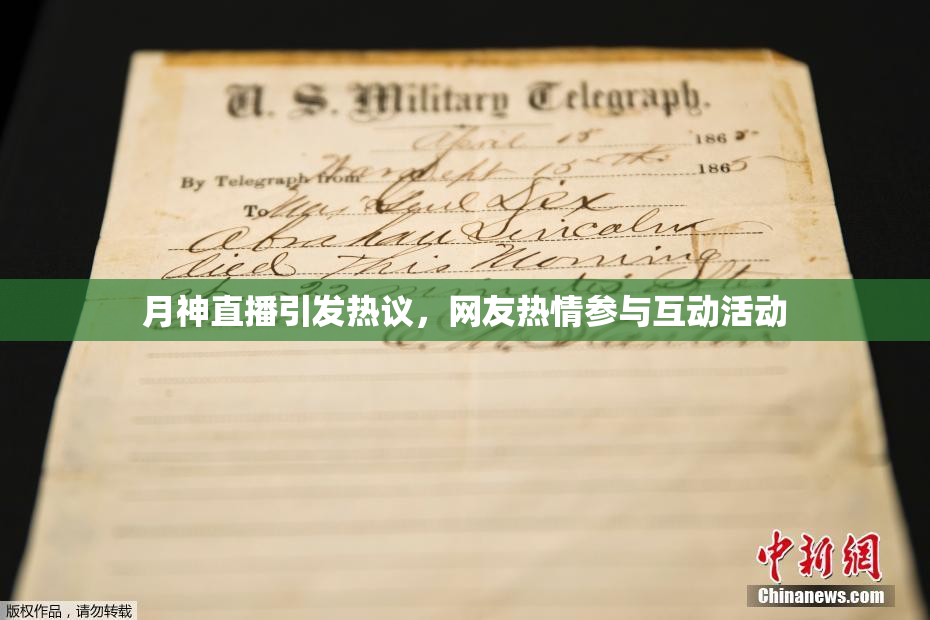 U. S. Military Telegraph.
April 15 1865
By Telegraph from War Dept 15th 1865
To Maj Genl Dix
Abraham Lincoln
died This Morning
22 minutes after
月神直播引发热议，网友热情参与互动活动
E. M. Stanton
中新網
Chinanews.com
版权作品，请勿转载